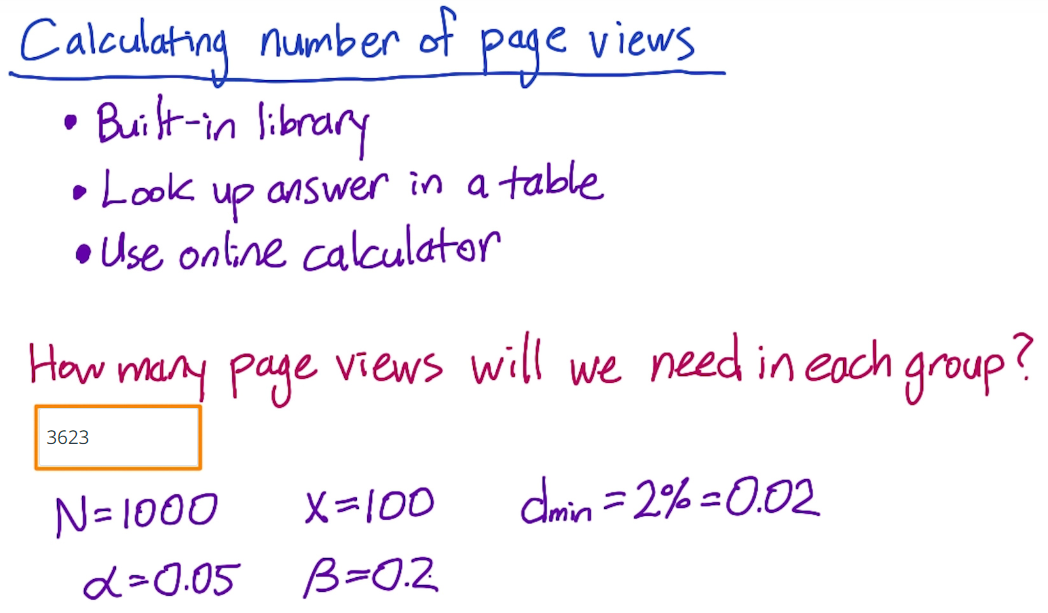 Calculating number of page views
• Built-in library
• Look up answer in a table
• Use online calculator
How many page views will we need in each group?
3623
N=1000 X=100 dmin=2%=0.02
α=0.05 β=0.2